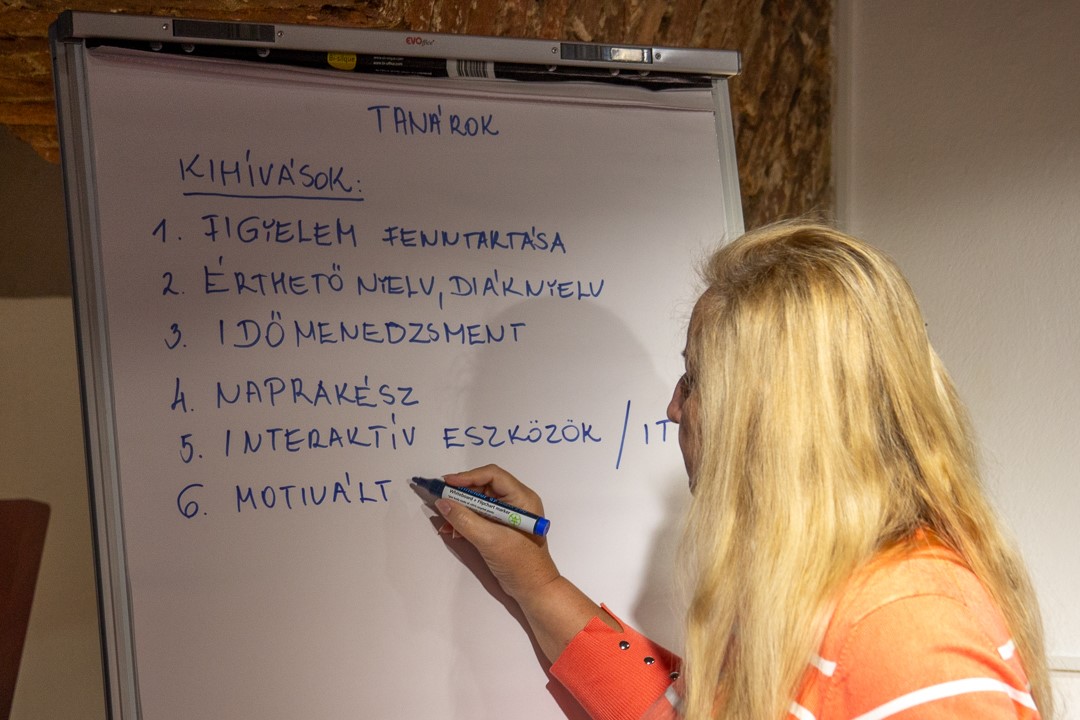 EVOflex
TANÁROK
KIHÍVÁSOK:
1. FIGYELEM FENNTARTÁSA
2. ÉRTHETŐ NYELV, DIÁKNYELV
3. IDŐMENEDZSMENT
4. NAPRAKÉSZ
5. INTERAKTÍV ESZKÖZÖK / IT
6. MOTIVÁLT